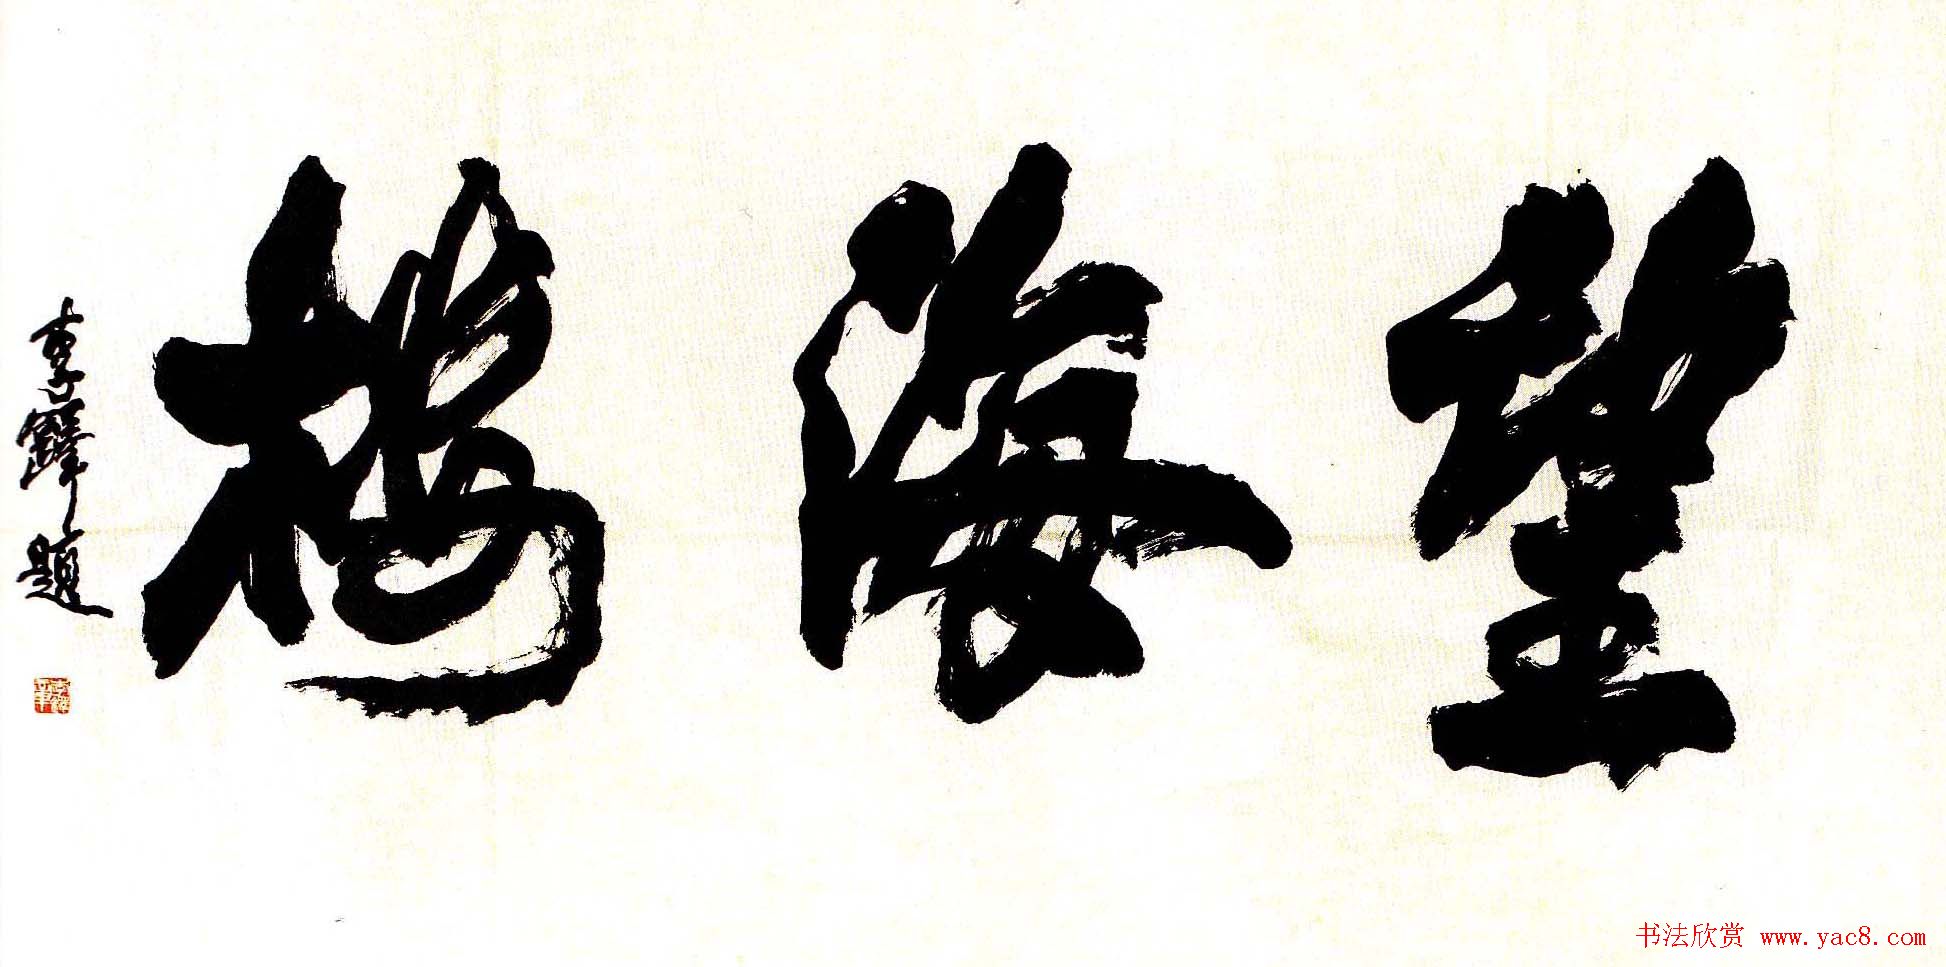 望海楼
李铎题
书法欣赏 www.yac8.com